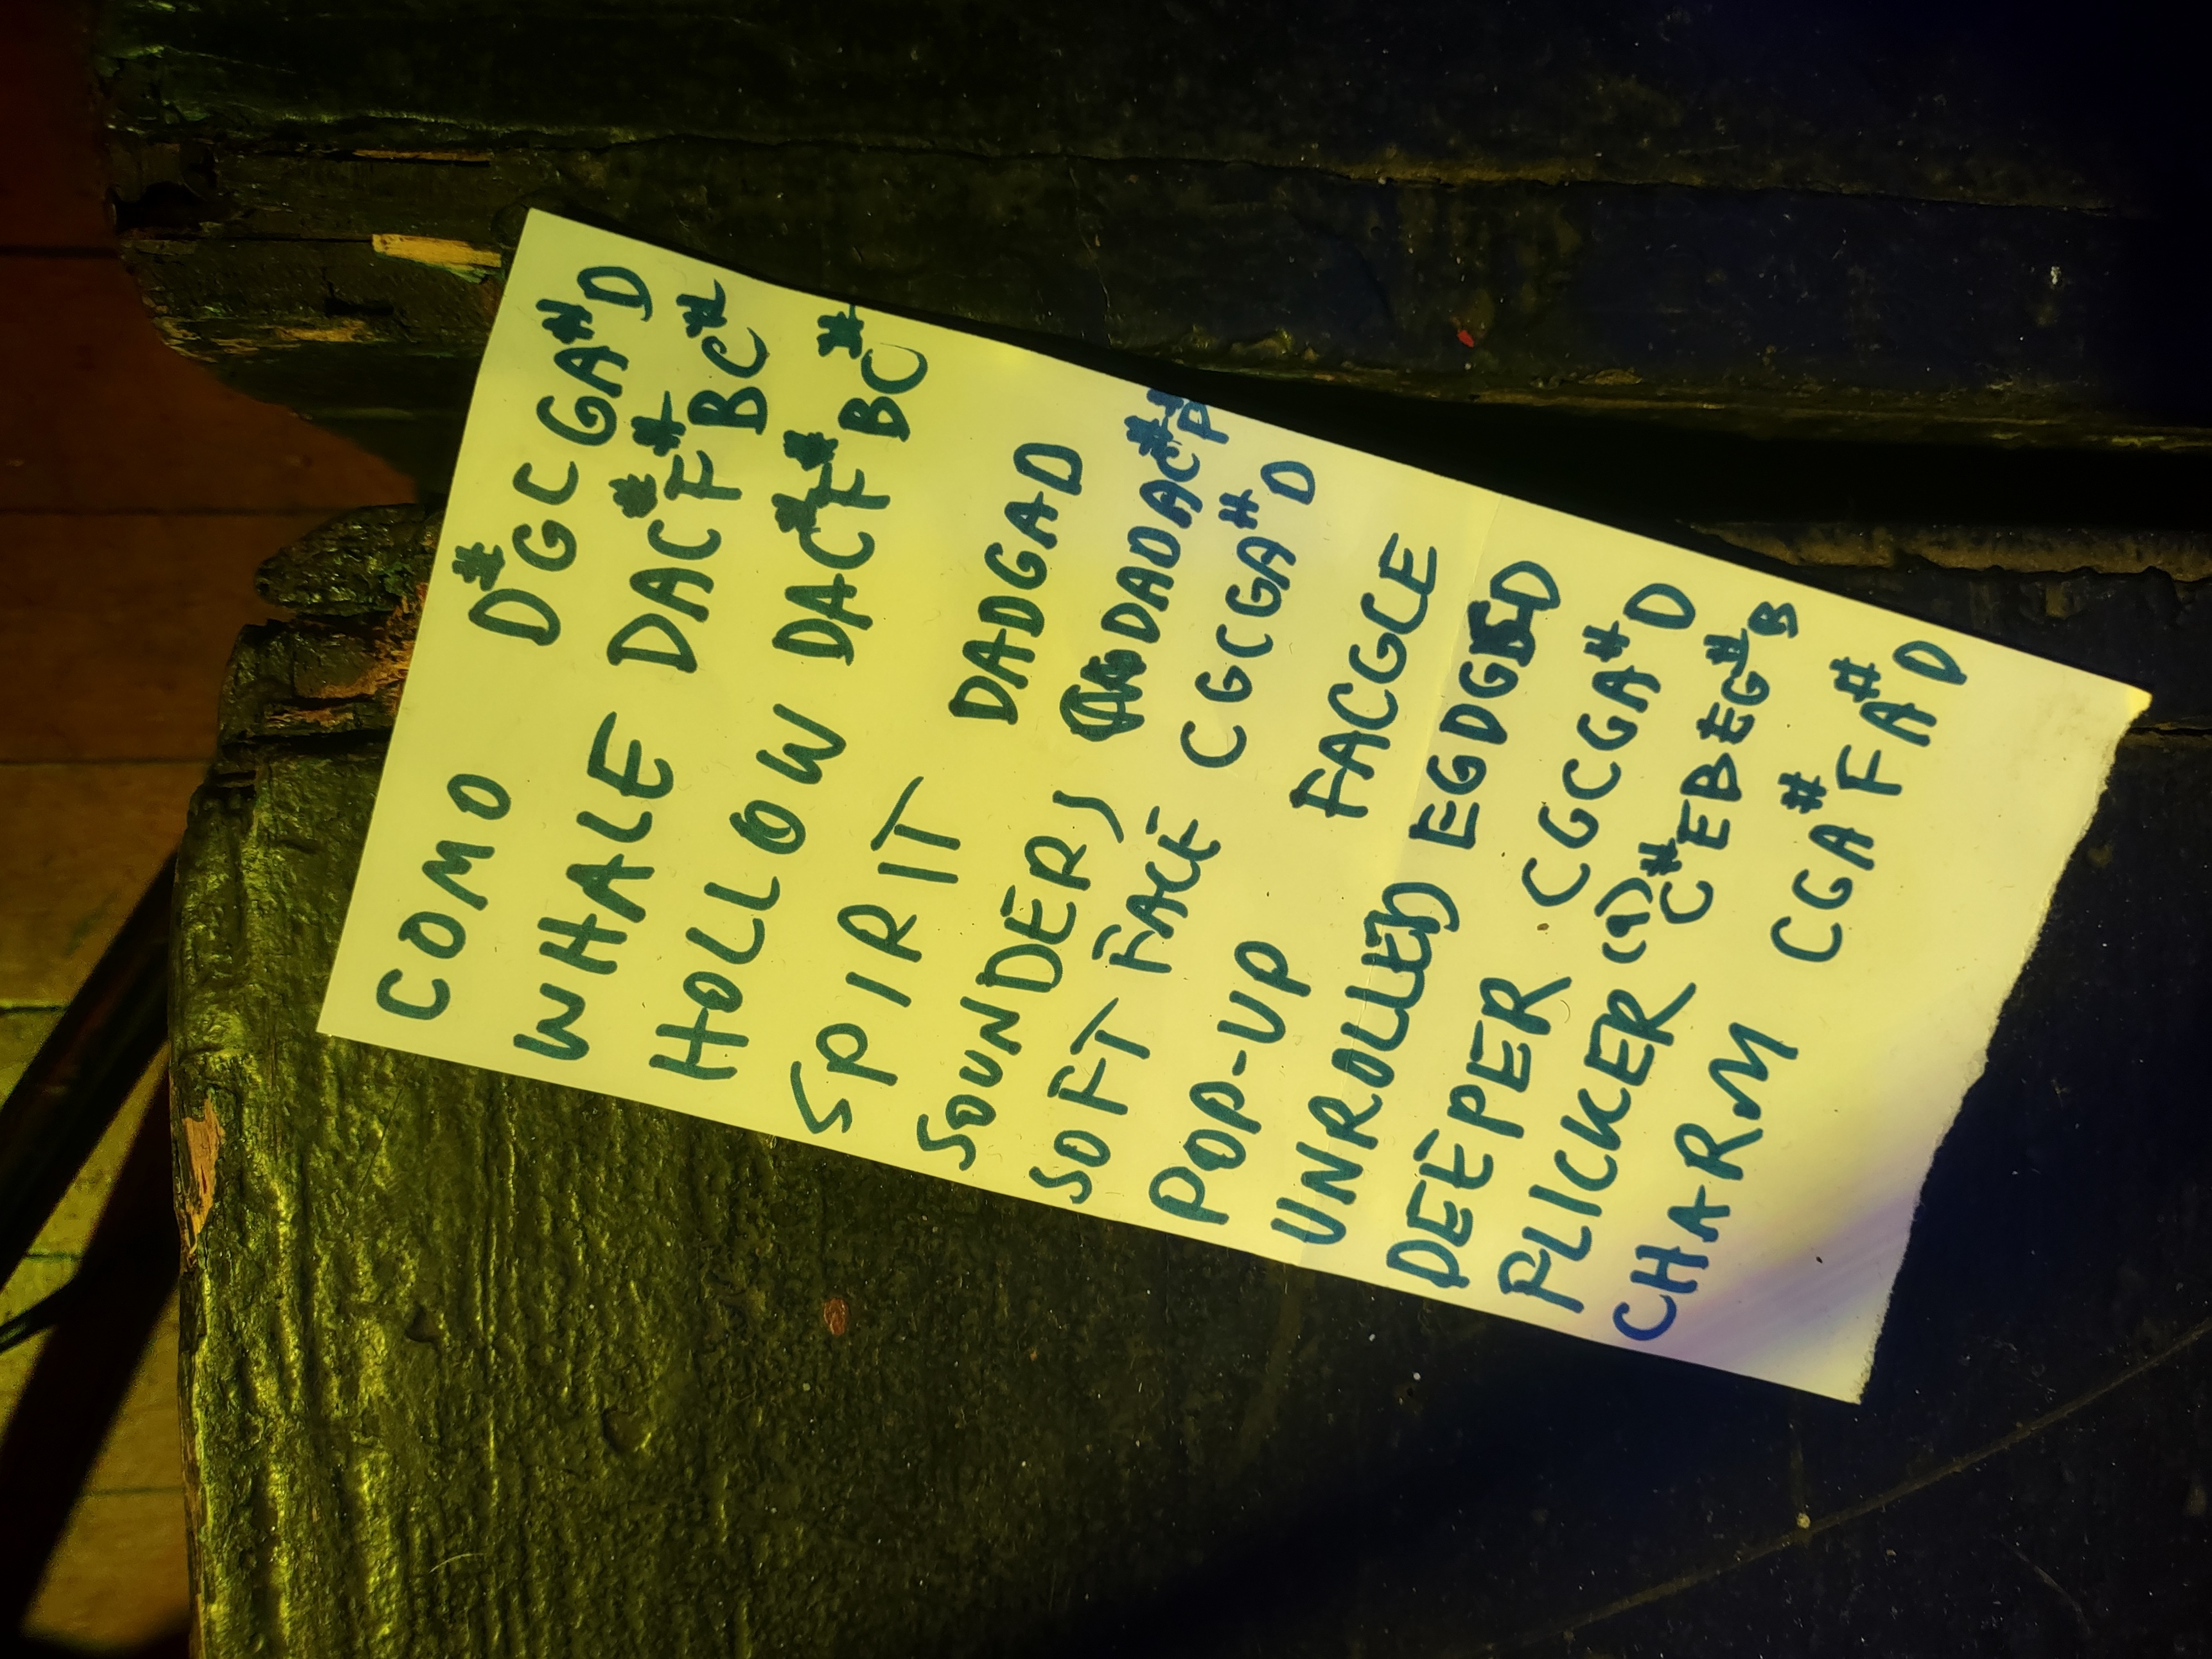 COMO D#GCGA#D
WHALE DAC#F#BC#
HOLLOW DAC#F#BC#
SPIRIT DADGAD
SOUNDER) DADAC#
SOFT FACE CGCGA#D
POP-UP FACGCE
UNROLLED EGDG
DEEPER CGCGA#D
PLICKER (1) C#EBEG#B
CHARM CGA#FA#D